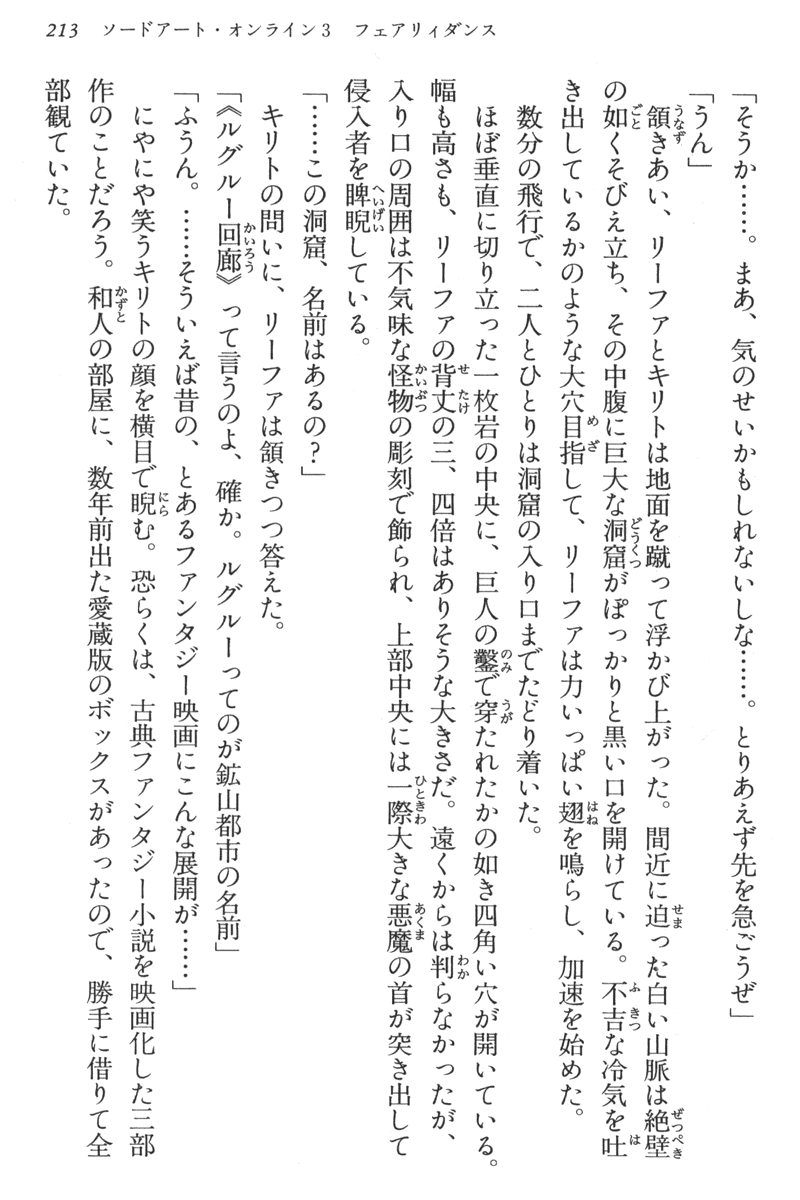 213 ソードアート・オンライン3 フェアリィダンス
「そうか……。まあ、気のせいかもしれないしな……。とりあえず先を急ごうぜ」
「うん」
頷きあい、リーファとキリトは地面を蹴って浮かび上がった。間近に迫った白い山脈は絶壁
の如くそびえ立ち、その中腹に巨大な洞窟がぽっかりと黒い口を開けている。不吉な冷気を吐
き出しているかのような大穴目指して、リーファは力いっぱい翅を鳴らし、加速を始めた。
数分の飛行で、二人とひとりは洞窟の入り口までたどり着いた。
ほぼ垂直に切り立った一枚岩の中央に、巨人の鑿で穿たれたかの如き四角い穴が開いている。
幅も高さも、リーファの背丈の三、四倍はありそうな大きさだ。遠くからは判らなかったが、
入り口の周囲は不気味な怪物の彫刻で飾られ、上部中央には一際大きな悪魔の首が突き出して
侵入者を睥睨している。
「……この洞窟、名前はあるの？」
キリトの問いに、リーファは頷きつつ答えた。
「《ルグルー回廊》って言うのよ、確か。ルグルーってのが鉱山都市の名前」
「ふうん。……そういえば昔の、とあるファンタジー映画にこんな展開が……」
にやにや笑うキリトの顔を横目で睨む。恐らくは、古典ファンタジー小説を映画化した三部
作のことだろう。和人の部屋に、数年前出た愛蔵版のボックスがあったので、勝手に借りて全
部観ていた。